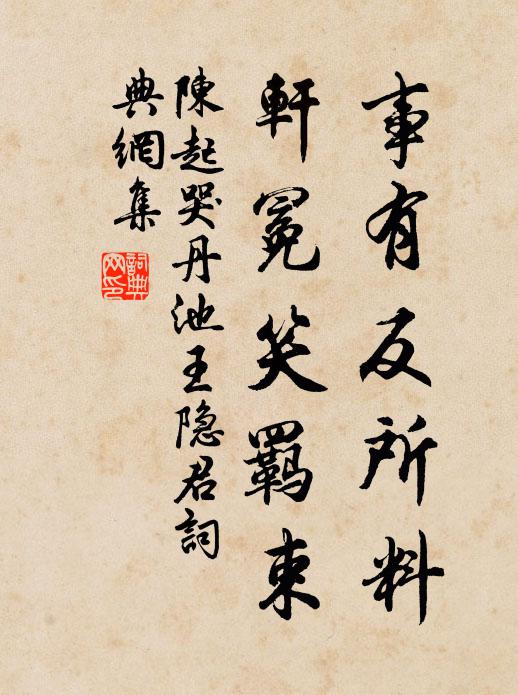 事有反所料
軒冕笑羈束
陳起哭丹池王隐君詞
典網集
詞典网印